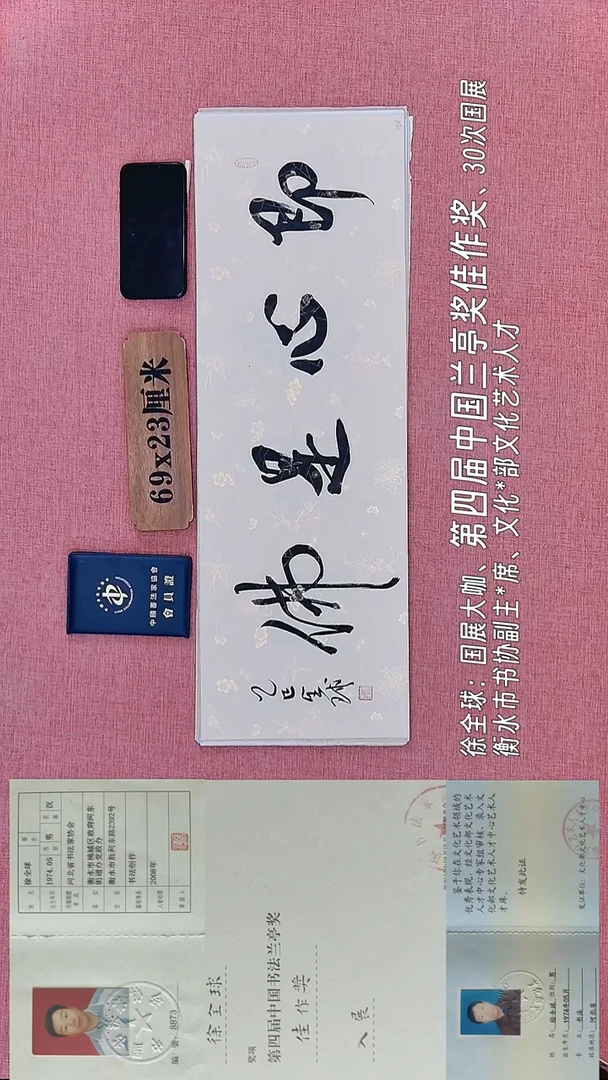 即心是佛
乙巳 全球
69x23厘米
中國書法家協會
會員證
徐全球：国展大咖、第四届中国兰亭奖佳作奖、30次国展
衡水市书协副主*席、文化*部文化艺术人才
徐全球
1974.05
男
汉
河北省书法家协会
衡水市桃城区政府河东
街道办党政办
衡水市胜利东路2392号
书法创作
2008年
编号：8873
徐全球
奖项
第四届中国书法兰亭奖
佳作奖
入展
鉴于你在文化艺术领域的
优秀表现，经文化部文化艺术
人才中心专家组审核，录入文
化部文化艺术人才中心艺术人
才库。
特发此证
发证单位：文化部文化艺术人才中心
姓名：徐全球 性别：男
出生年月：1974年05月
专业：书法